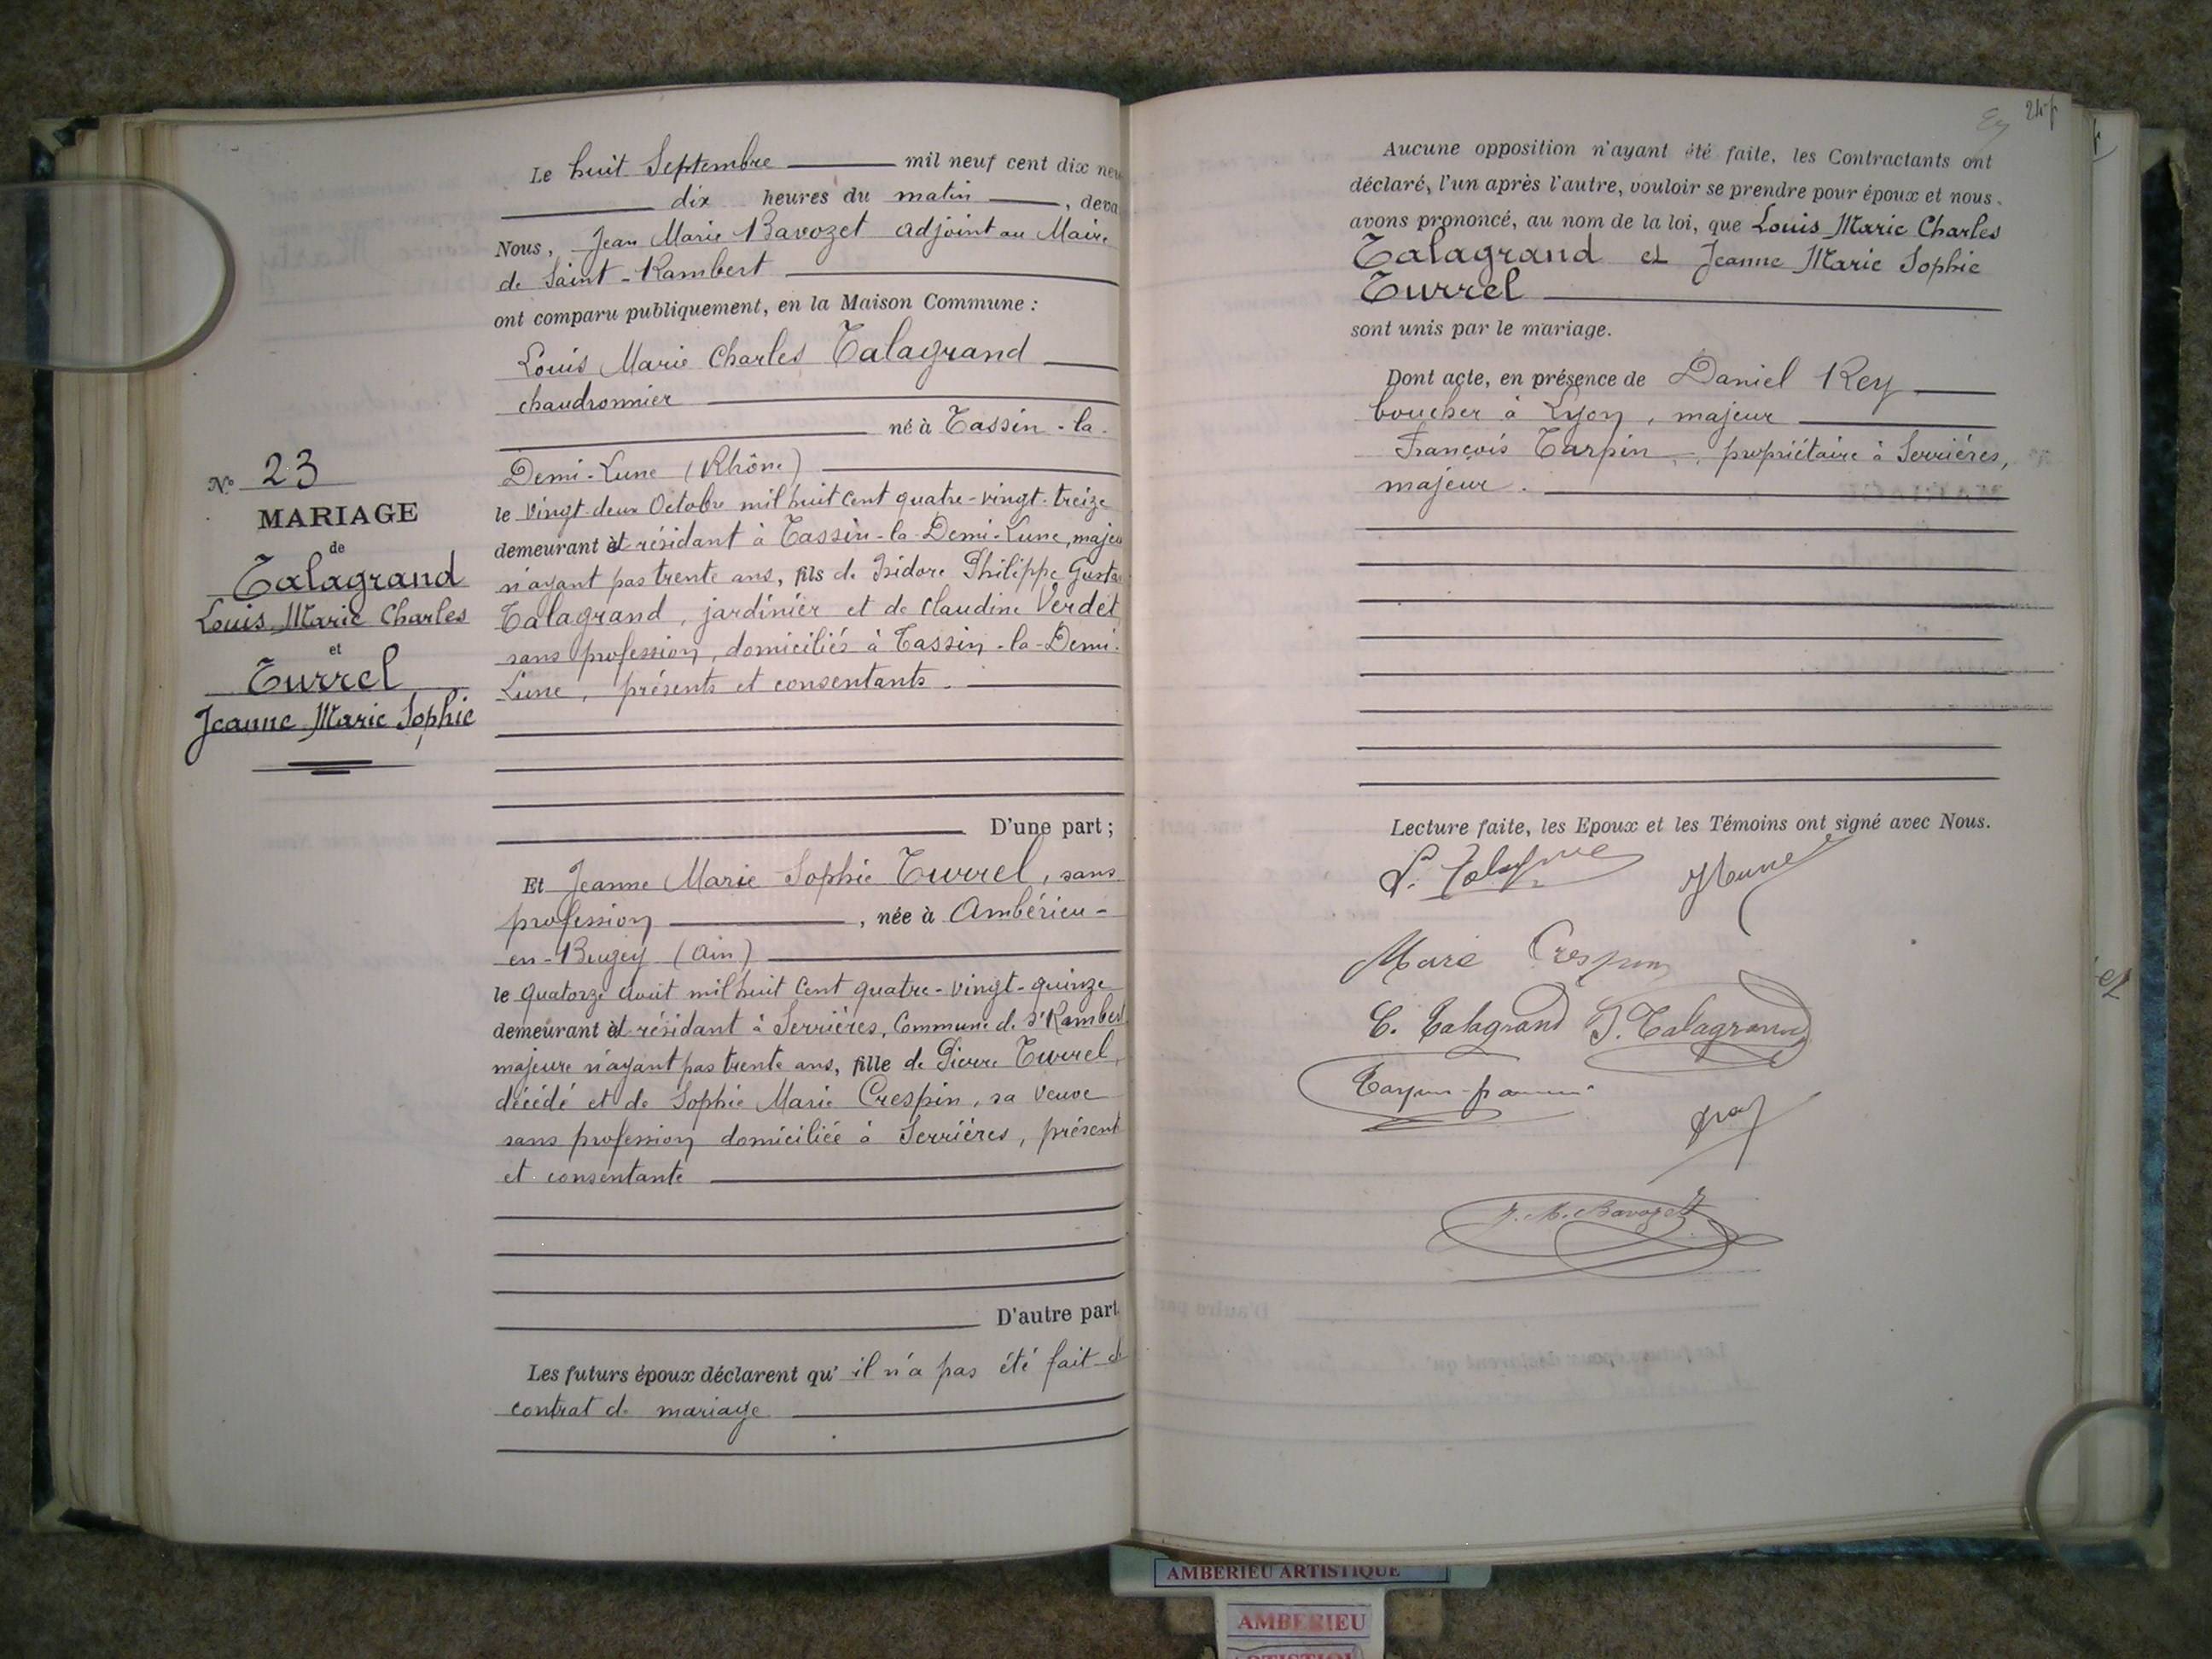 Le huit Septembre mil neuf cent dix neu
dix heures du matin, deva
Nous, Jean Marie Bavozet adjoint au Maire
de Saint-Rambert
ont comparu publiquement, en la Maison Commune :
Louis Marie Charles Talagrand
chaudronnier
né à Tassin-la-
Demi-Lune (Rhône)
le vingt-deux Octobre mil huit cent quatre-vingt-treize
demeurant et résidant à Tassin-la-Demi-Lune, majeu
n'ayant pas trente ans, fils de Isidore Philippe Gusta
Talagrand, jardinier et de Claudine Verdet
sans profession, domiciliés à Tassin-la-Demi-
Lune, présents et consentants.
D'une part ;
Et Jeanne Marie Sophie Turrel, sans
profession, née à Ambérieu-
en-Bugey (Ain)
le quatorze Août mil huit cent quatre-vingt-quinze
demeurant et résidant à Serrières, Commune de St Rambert
majeure n'ayant pas trente ans, fille de Pierre Turrel,
décédé et de Sophie Marie Crespin, sa veuve
sans profession domiciliée à Serrières, présent
et consentante
D'autre part.
Les futurs époux déclarent qu'il n'a pas été fait de
contrat de mariage
No 23
MARIAGE
de
Talagrand
Louis Marie Charles
et
Turrel
Jeanne Marie Sophie
24
Aucune opposition n'ayant été faite, les Contractants ont
déclaré, l'un après l'autre, vouloir se prendre pour époux et nous
avons prononcé, au nom de la loi, que Louis Marie Charles
Talagrand et Jeanne Marie Sophie
Turrel
sont unis par le mariage.
Dont acte, en présence de Daniel Rey
boucher à Lyon, majeur
François Tarpin, propriétaire à Serrières,
majeur.
Lecture faite, les Epoux et les Témoins ont signé avec Nous.
Marie Crespin
C. Talagrand T. Talagrand
J. M. Bavozet
AMBERIEU ARTISTIQUE
AMBERIEU
ARTISTIQU